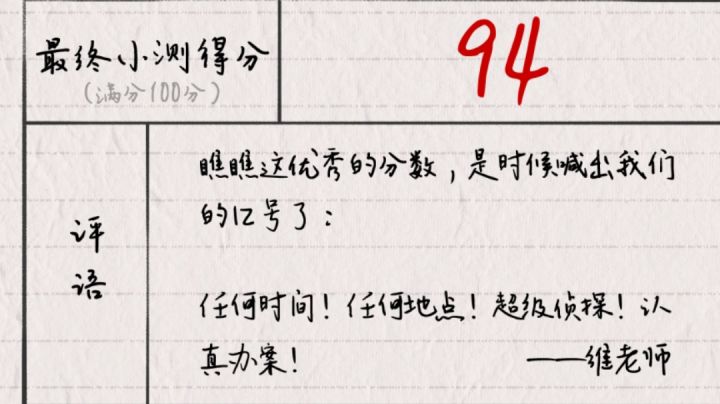 最终小测得分
(满分100分)
94
评语
瞧瞧这优秀的分数,是时候喊出我们
的口号了:
任何时间!任何地点!超级侦探!认
真办案!
——维老师